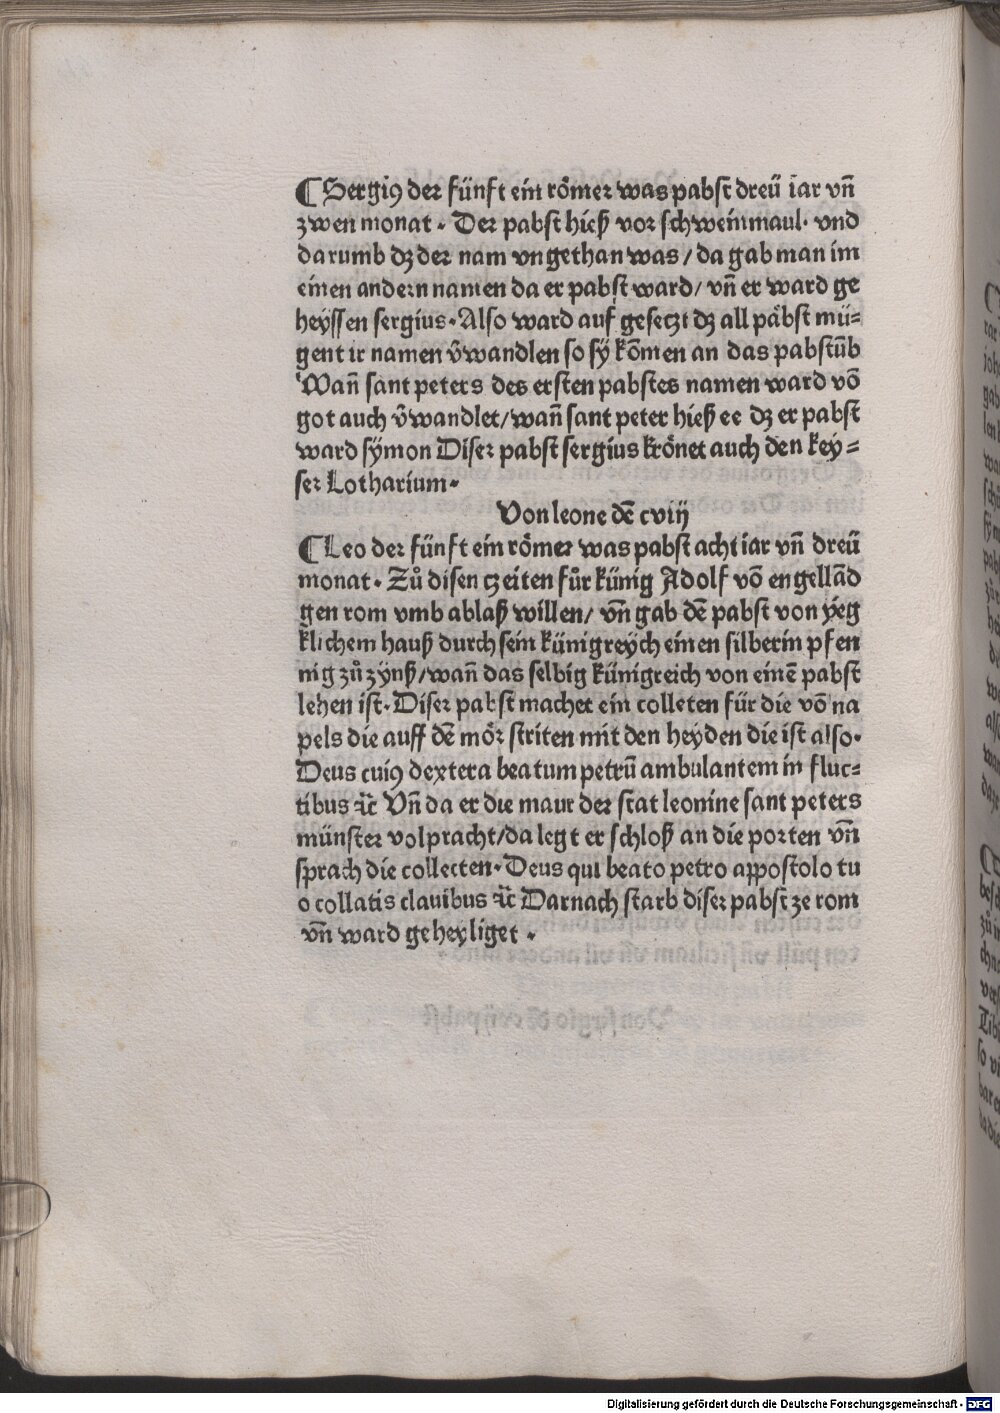 ¶ Sergiꝰ der fünft ein rômer was pabst dreü iar vñ
zwen monat . Der pabst hieß vor schweinmaul. vnd
darumb dz der nam vngethan was / da gab man im
einen andern namen da er pabst ward / vñ er ward ge
heyssen sergius . Also ward auf gesetzt dz all påbst mü⸗
gent ir namen v̄wandlen so sÿ kōmen an das pabstūb
Wañ sant peters des ersten pabstes namen ward vō
got auch v̄wandlet / wañ sant peter hieß ee dz er pabst
ward sÿmon Diser pabst sergius krônet auch den key⸗
ser Lotharium .
Von leone dē cviij
¶ Leo der fünft ein rômer was pabst acht iar vñ dreü
monat . Zů disen czeiten fůr künig Adolf vō engellād
gen rom vmb ablaß willen / vñ gab dē pabst von ÿeg
klichem hauß durch sein künigreÿch einen silberin pfen
nig zů zÿnß / wañ das selbig künigreich von einē pabst
lehen ist . Diser pabst machet ein colleten für die vō na
pels die auff dē môr striten mit den heyden die ist also .
Deus cuiꝰ dextera beatum petrū ambulantem in fluc⸗
tibus ⁊c̄ Vñ da er die maur der stat leonine sant peters
münster volpracht / da legt er schloß an die porten vñ
sprach die collecten . Deus qui beato petro appostolo tu
o collatis clauibus ⁊c̄ Darnach starb diser pabst ze rom
vñ ward geheyliget .
Digitalisierung gefördert durch die Deutsche Forschungsgemeinschaft - DFG